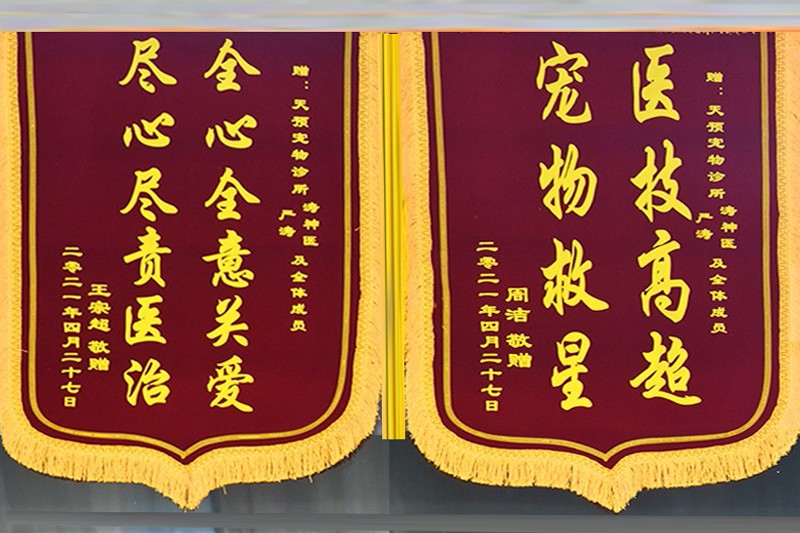 赠：天预宠物诊所 严涛 涛神医 及全体成员
全心全意关爱
尽心尽责医治
王宗超 敬赠
二零二一年四月二十七日
赠：天预宠物诊所 严涛 涛神医 及全体成员
医技高超
宠物救星
周洁 敬赠
二零二一年四月二十七日